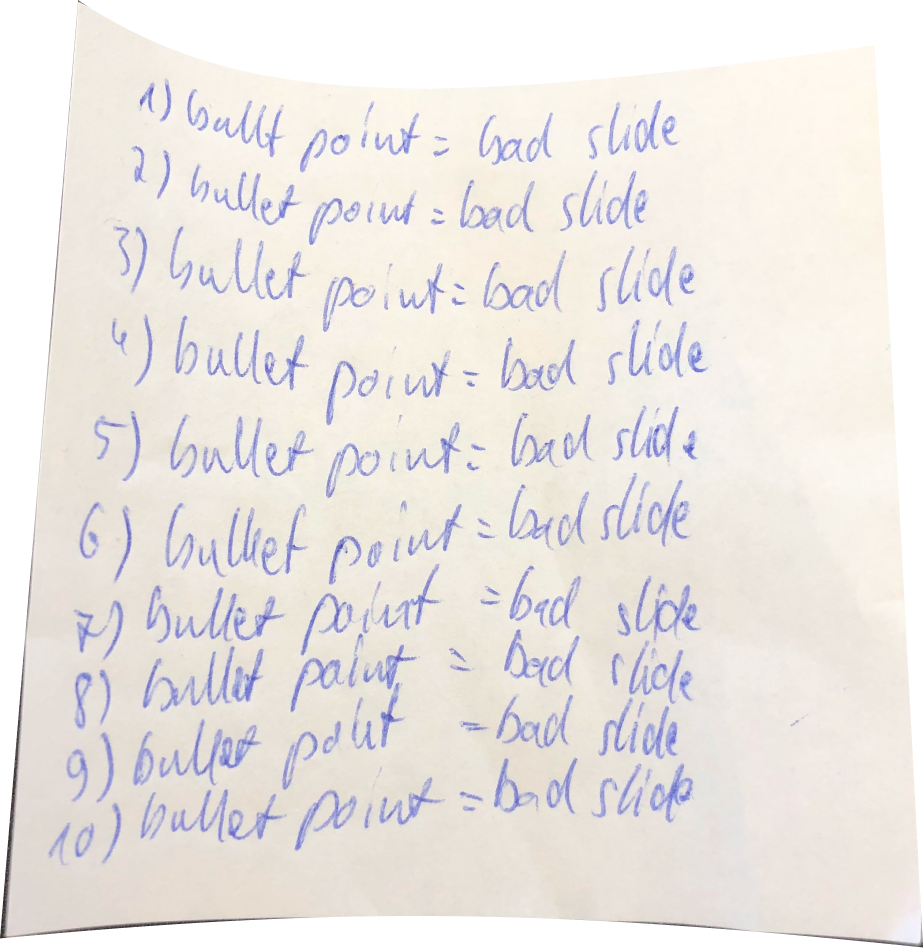 1) bullt point = bad slide
2) bullet point = bad slide
3) bullet point = bad slide
4) bullet point = bad slide
5) bullet point = bad slide
6) bullet point = bad slide
7) bullet point = bad slide
8) bullet point = bad slide
9) bullet point = bad slide
10) bullet point = bad slide